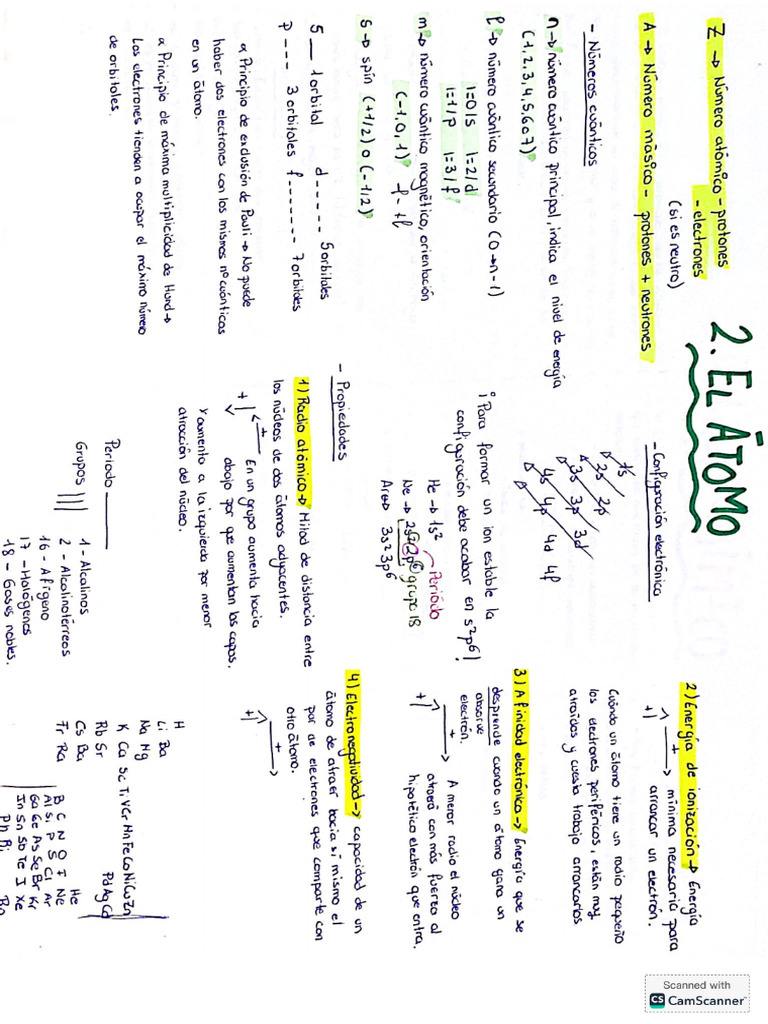 2. EL ÁTOMO
Z → Número atómico - protones
- electrones
(si es neutro)
A → Número másico - protones + neutrones
- Números cuánticos
n → número cuántico principal, indica el nivel de energía
(1,2,3,4,5,6 o 7)
l → número cuántico secundario (0 → n-1)
l=0/s l=2/d
l=1/p l=3/f
m → número cuántico magnético, orientación
(-1,0,1) -l - +l
s → spín (+1/2) o (-1/2)
S __ 1 orbital d ----- 5 orbitales
p --- 3 orbitales f ------- 7 orbitales
Principio de exclusión de Pauli → No puede
haber dos electrones con los mismos nº cuánticos
en un átomo.
Principio de máxima multiplicidad de Hund →
Los electrones tienden a ocupar el máximo número
de orbitales.
- Configuración electrónica
1s
2s 2p
3s 3p 3d
4s 4p 4d 4f
¡Para formar un ion estable la
configuración debe acabar en s²p⁶!
He → 1s²
Periódo
Ne → 2s²2p⁶ grupo 18
3s²3p⁶
- Propiedades
1) Radio atómico → Mitad de distancia entre
los núcleos de dos átomos adyacentes.
+ +
En un grupo aumenta hacia
abajo por que aumentan las capas.
Y aumenta a la izquierda por menor
atracción del núcleo.
Período
Grupos
1 - Alcalinos
2 - Alcalinotérreos
16 - Anfígeno
17 - Halógenos
18 - Gases nobles.
2) Energía de ionización → Energía
mínima necesaria para
arrancar un electrón.
+ +
Cuándo un átomo tiene un radio pequeño
los electrones periféricos, están muy
atraídos y cuesta trabajo arrancarlos
3) Afinidad electrónica → Energía que se
desprende cuando un átomo gana un
absorve
electrón.
+ +
A menor radio el núcleo
atraerá con más fuerza al
hipotético electrón que entra.
4) Electronegatividad → capacidad de un
átomo de atraer hacia sí mismo el
par de electrones que comparte con
otro átomo.
+ +
H He
Li Ba B C N O F Ne
Na Mg Al Si P S Cl Ar
K Ca Sc Ti V Cr Mn Fe Co Ni Cu Zn Ga Ge As Se Br Kr
Rb Sr Pd Ag Cd In Sn Sb Te I Xe
Cs Ba Pb Bi Rn
Fr Ra
Scanned with
CS CamScanner